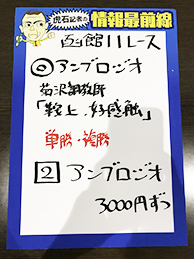 虎石記者の
情報最前線
函館11レース
◎アンブロジオ
菊沢調教師
「鞍上、好感触」
単勝・複勝
2 アンブロジオ
3000円ずつ